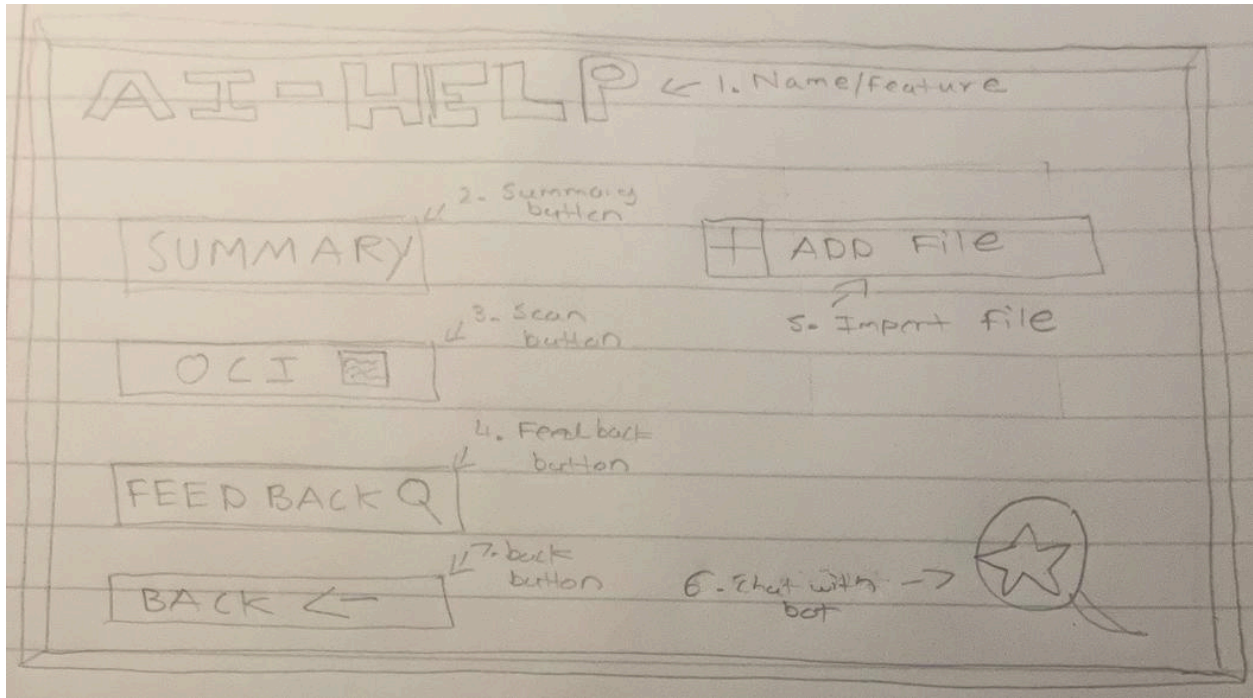 AI-HELP ← 1. Name/feature
2- Summary
button
SUMMARY
+ ADD File
5- Import file
3- Scan
button
OCI
4. Feed back
button
FEED BACK Q
7- back
button
BACK ←
6-Chat with →
bot